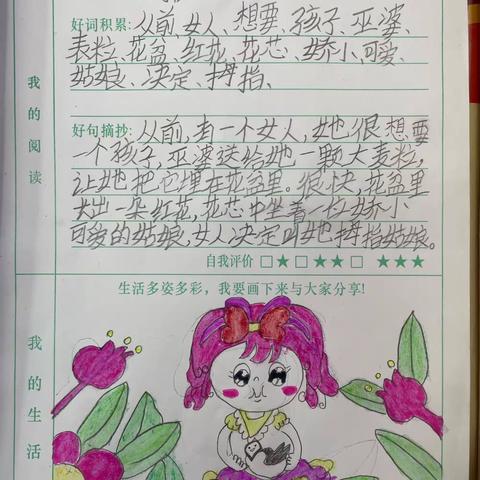 好词积累:从前、女人、想要、孩子、巫婆、
麦粒、花盆、红花、花芯、娇小、可爱、
姑娘、决定、拇指、
好句摘抄:从前,有一个女人,她很想要
一个孩子,巫婆送给她一颗大麦粒,
让她把它埋在花盆里。很快,花盆里
长出一朵红花,花芯中坐着一位娇小
可爱的姑娘,女人决定叫她拇指姑娘。
自我评价 □★ □★★ □ ★★★
我的阅读
生活多姿多彩,我要画下来与大家分享!
我的生活